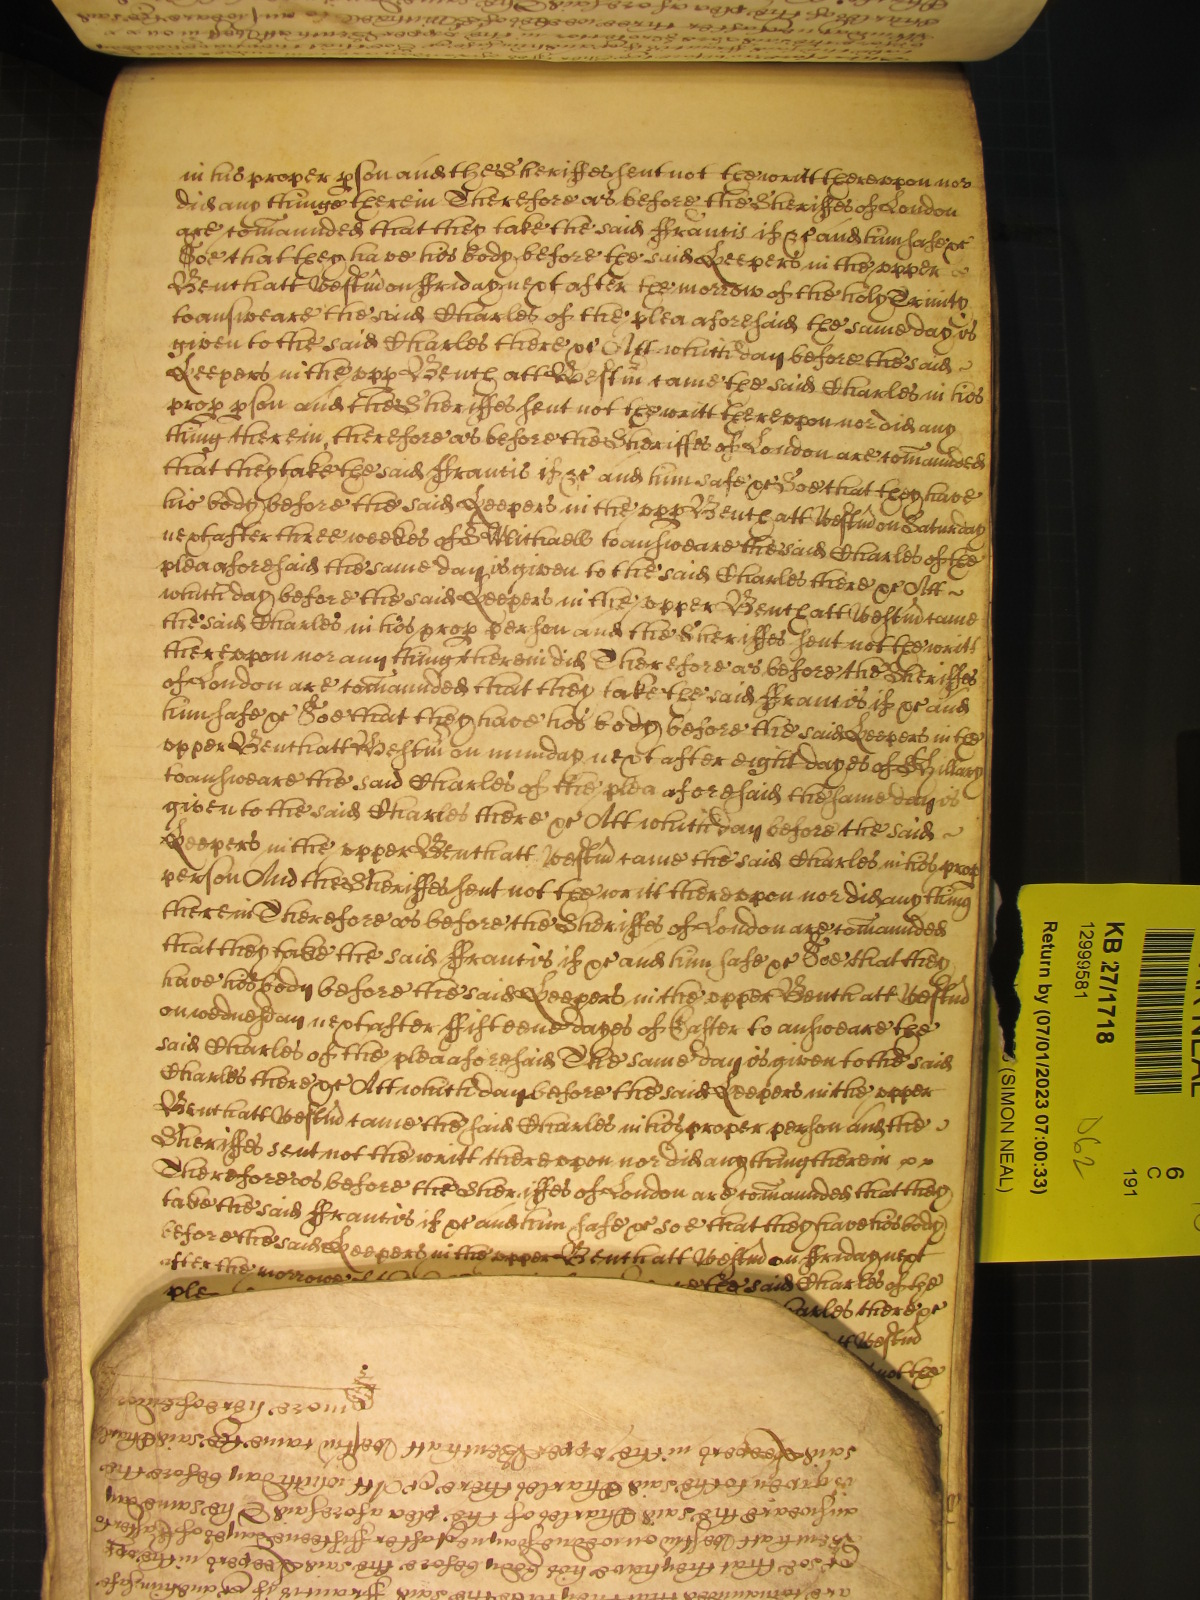 in his proper pson and the Sheriffes sent not the writt thereupon nor
did any thinge therein Therefore as before the Sheriffes of London
are comaunded that they take the said Francis if &c and him safe &c
Soe that they have his body before the said Keepers in the upper
Bench att Westm̃ on Friday next after the morrow of the holy Trinity
to answeare the said Charles of the plea aforesaid the same day is
given to the said Charles there &c Att which day before the said
Keepers in the upp Bench att Westm̃ came the said Charles in his
prop pson and the Sheriffes sent not the writt thereupon nor did any
thing therein, therefore as before the Sheriffes of London are comaunded
that they take the said Francis if &c and him safe &c Soe that they have
his body before the said Keepers in the upp Bench att Westm̃ on Saturday
next after three weekes of S Michaell to answeare the said Charles of the
plea aforesaid the same day is given to the said Charles there &c Att
which day before the said Keepers in the upper Bench att Westm̃ came
the said Charles in his prop person and the Sheriffes sent not the writt
thereupon nor any thing therein did Therefore as before the Sheriffes
of London are comaunded that they take the said Francis if &c and
him safe &c Soe that they have his body before the said Keepers in the
upper Bench att Westm̃ on munday next after eight dayes of S Hillary
to answeare the said Charles of the plea aforesaid the same day is
given to the said Charles there &c Att which day before the said
Keepers in the upper Bench att Westm̃ came the said Charles in his prop
person And the Sheriffes sent not the writt thereupon nor did any thing
therein Therefore as before the Sheriffes of London are comaunded
that they take the said Francis if &c and him safe &c Soe that they
have his body before the said Keepers in the upper Bench att Westm̃
on wednesday next after fifteene dayes of Easter to answeare the
said Charles of the plea aforesaid The same day is given to the said
Charles there &c Att which day before the said Keepers in the upper
Bench att Westm̃ came the said Charles in his proper person and the
Sheriffes sent not the writt thereupon nor did any thing therein
Therefore as before the Sheriffes of London are comaunded that they
take the said Francis if &c and him safe &c soe that they have his body
before the said Keepers in the upper Bench att Westm̃ on Friday next
after the morrowe the said Charles of the
ple Charles there &c
Westm̃
not the
more hereof
said Keepers in the upper Bench att Westm̃ came the said Charles
is given to the said Charles there &c Att which day before the
answeare the said Charles of the plea aforesaid The same day
Bench att Westm̃ on wednesday next after fifteene dayes of Easter to
&c soe that they have his body before the said Keepers in the upper
are comaunded that they take the said Francis if &c and him safe
KB 27/1718
12999581
Return by (07/01/2023 07:00:33)
(SIMON NEAL)
NEAL
D62
6
C
191